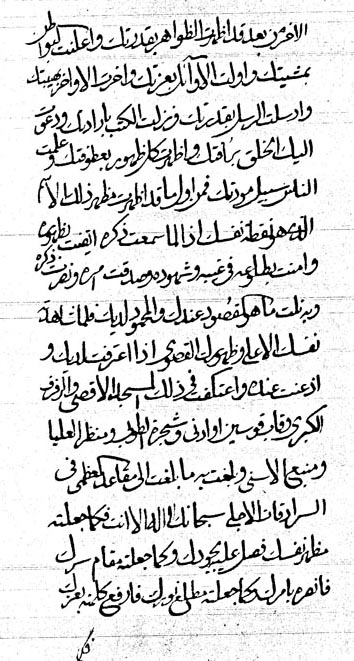 الامر من بعد قد اظهرت الظواهر بقدرتك واعلنت البواطن
بمشيتك واولت الاوائل بعزتك واخرت الاواخر بهيبتك
وارسلت الرسل بقدرتك ونزلت الكتب بارادتك ودعوت
اليك الخلق برأفتك واظهرت كل ظهور بعطوفتك وعلمت
الناس سبيل مودتك فمن اواما قد اظهرت مظهر ذلك الاسم
الذي هو نقطة نفسك اذا لما سمعت ذكره ايقنت بظهوره
وامنت بطلوعه في غيبه وشهوده وصدقت امره ونصرت ذكره
وبذلت ما هو المقصود عندك والمحمود لديك فلما شاهدت
نفسك الاعلى وظهورك القصوى اذا اعترفت لديك و
اذعنت عنده واعتكفت في ذلك المسجد الاقصى والرفرف
الكبرى وقاب قوسين او ادنى وشجرة الطوبى ومنظر العليا
ومنبع الاسنى وبلغت به ما بلغت الى مقاعد العظمى في
السرادقات الاجلى سبحانك لا اله الا انت فكما جعلته
مظهر نفسك فصل عليه بجودك وكما جعلته مقام سرك
فانصره بامرك وكما جعلته مطلع نورك فارفع كلمته بعزتك